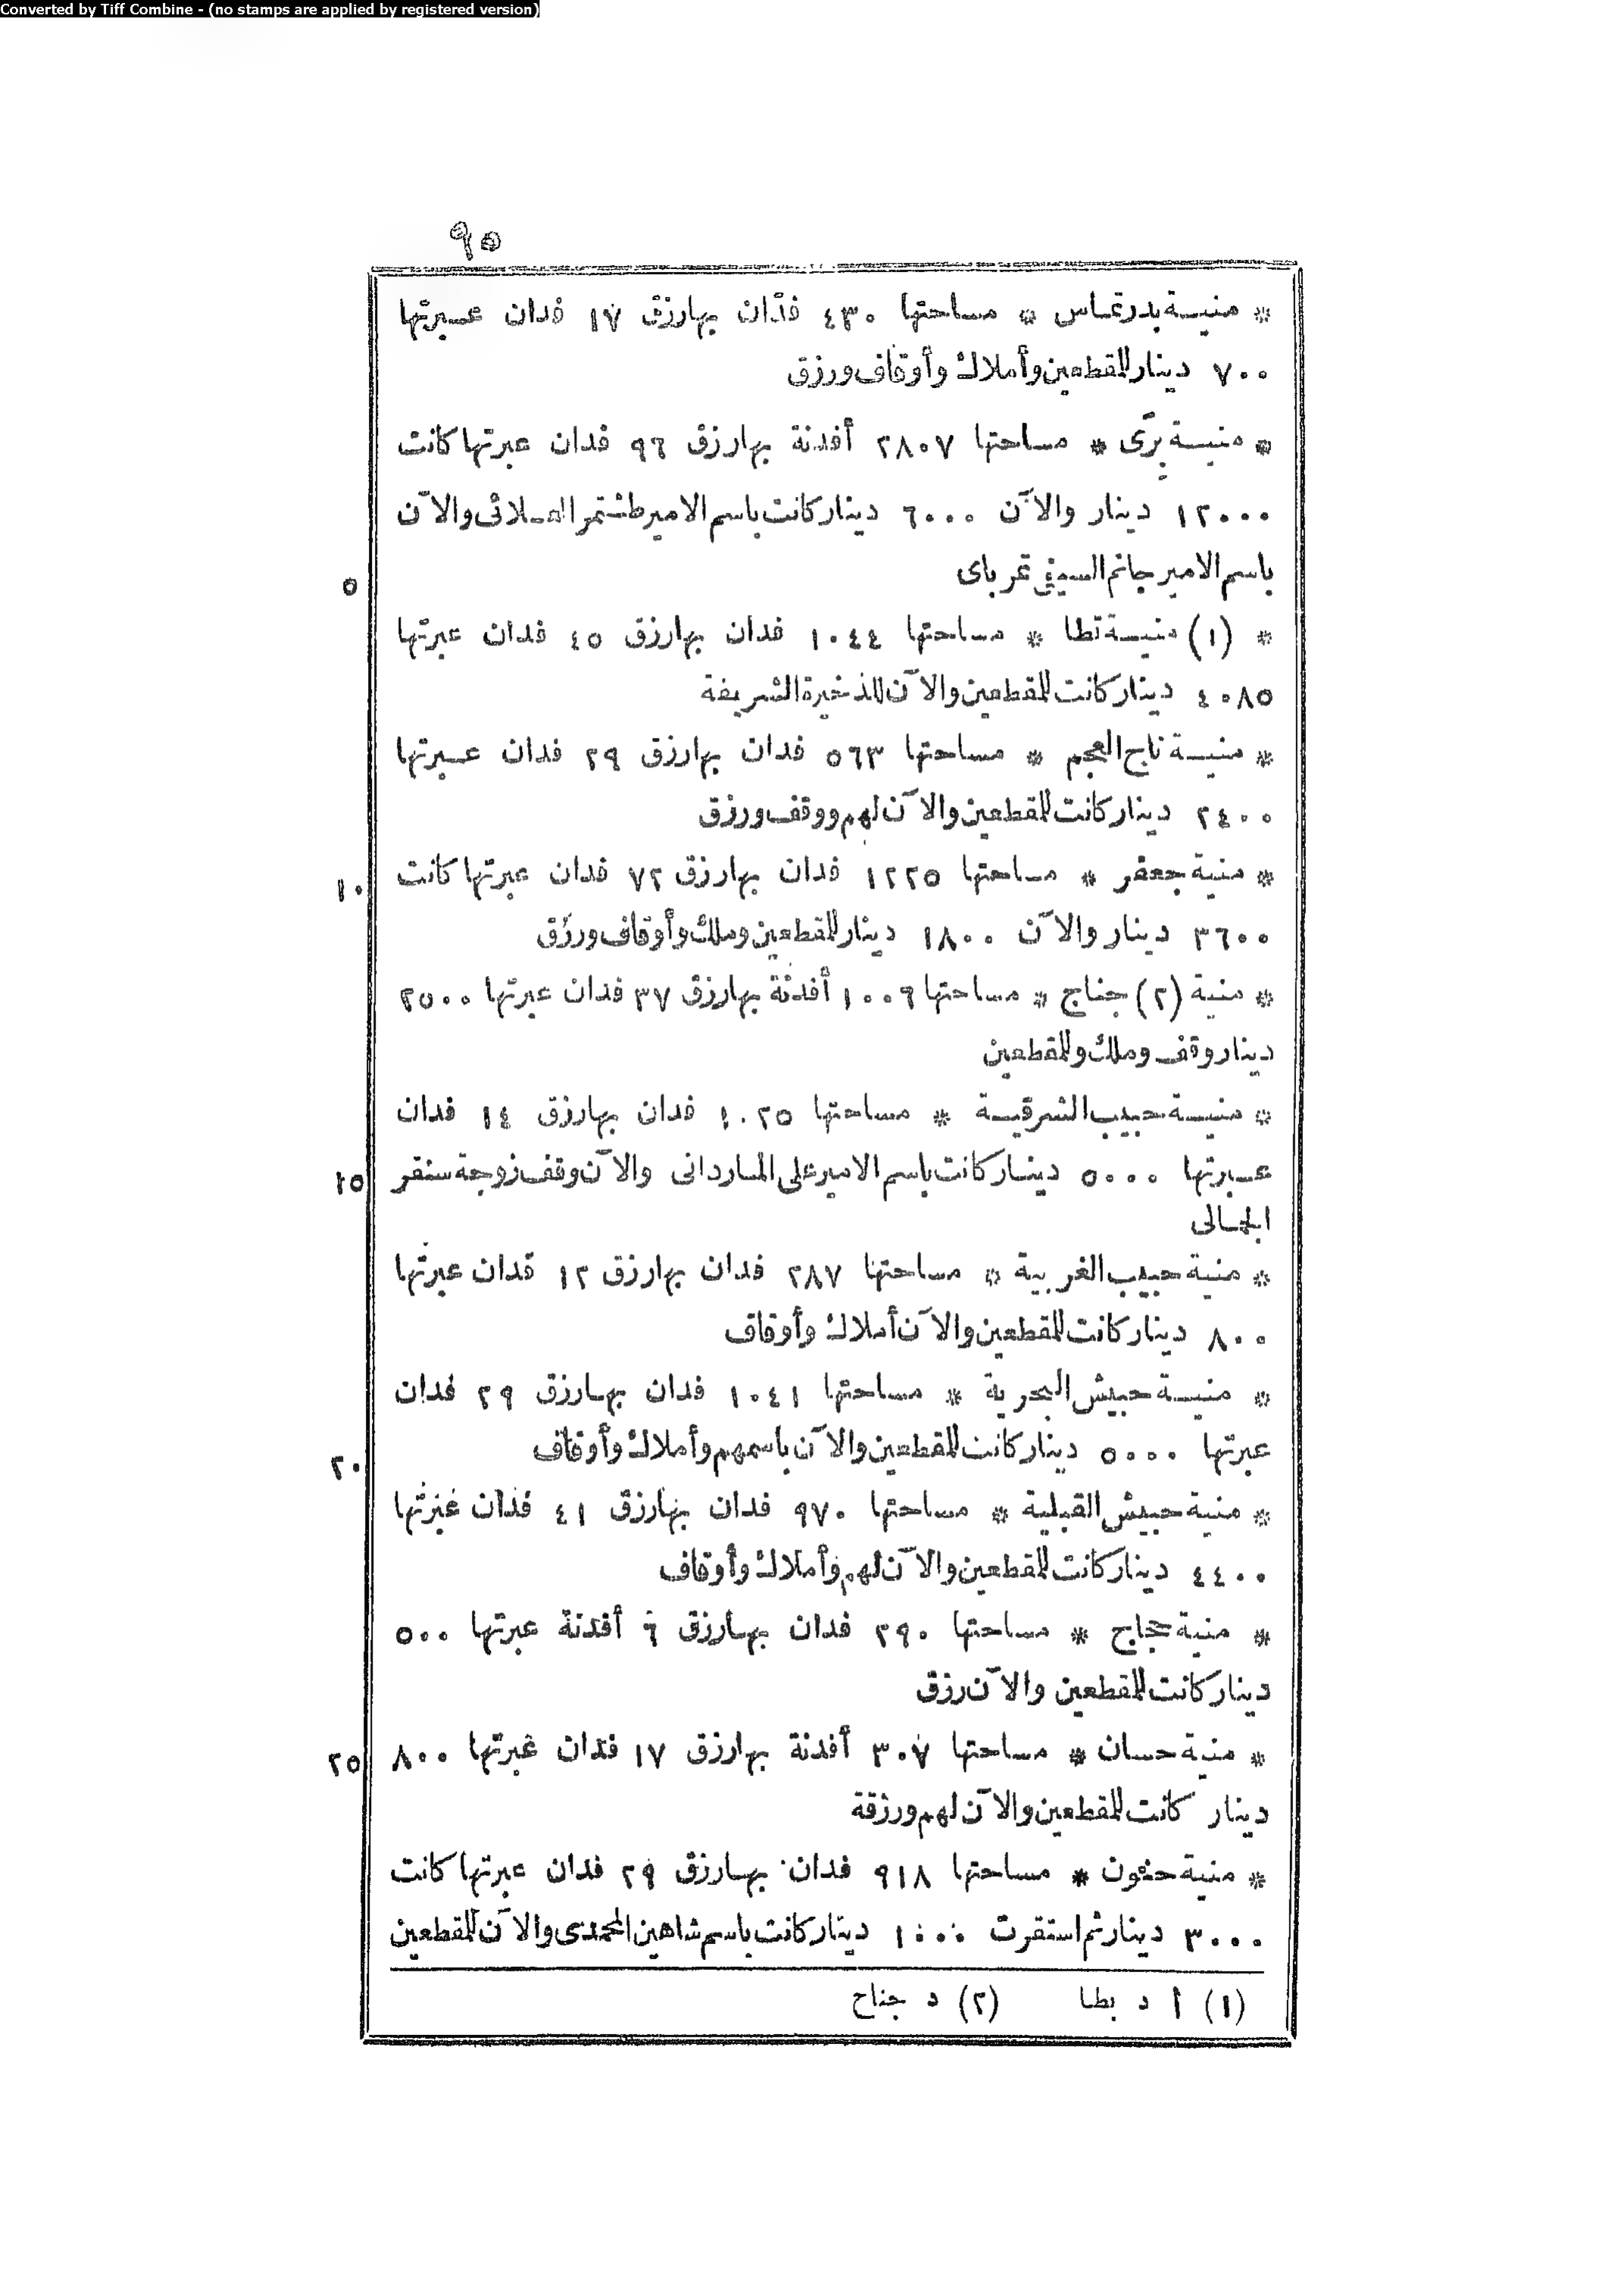 Converted by Tiff Combine - (no stamps are applied by registered version)
٩٥
* منيـــة بدر تماس * مساحتها ٤٣٠ فدّان بها رزق ١٧ فدان عـــبرتها
٧٠٠ دينار للمقطعين وأملاك وأوقاف ورزق
* منيـــة برّى * مساحتها ٢٨٠٧ أفدنة بها رزق ٩٦ فدان عبرتها كانت
١٢٠٠٠ دينار والآن ٦٠٠٠ دينار كانت باسم الامير طشتمر العـلائى والآن
باسم الامير جانم السيفى تمر باى
٥
* (١) منيـــة تطا * مساحتها ١٠٤٤ فدان بها رزق ٤٥ فدان عبرتها
٤٠٨٥ دينار كانت للمقطعين والآن للذخيرة الشريفة
* منيـــة تاج العجم * مساحتها ٥٦٣ فدان بها رزق ٢٩ فدان عـــبرتها
٢٤٠٠ دينار كانت للمقطعين والآن لهم ووقف ورزق
* منية جعفر * مساحتها ١٢٢٥ فدان بها رزق ٧٢ فدان عبرتها كانت
١٠
٣٦٠٠ دينار والآن ١٨٠٠ دينار للمقطعين وملك وأوقاف ورزق
* منية (٢) جناج * مساحتها ١٠٠٩ أفدنة بها رزق ٣٧ فدان عبرتها ٢٥٠٠
دينار وقف وملك وللمقطعين
* منيـــة حبيب الشرقيـــة * مساحتها ١٠٢٥ فدان بها رزق ١٤ فدان
عـــبرتها ٥٠٠٠ دينـار كانت باسم الامير على المـاردانى والآن وقف زوجة سنقر
١٥
الجمـالى
* منية حبيب الغربية * مساحتها ٢٨٧ فدان بها رزق ١٢ فدان عبرتها
٨٠٠ دينار كانت للمقطعين والآن أملاك وأوقاف
* منيـــة حبيش البحرية * مساحتها ١٠٤١ فدان بهـا رزق ٢٩ فدان
عبرتها ٥٠٠٠ دينار كانت للمقطعين والآن باسمهم وأملاك وأوقاف
٢٠
* منية حبيش القبلية * مساحتها ٩٧٠ فدان بها رزق ٤١ فدان عبرتها
٤٤٠٠ دينار كانت للمقطعين والآن لهم وأملاك وأوقاف
* منية حجاج * مساحتها ٢٩٠ فدان بهـا رزق ٦ أفدنة عبرتها ٥٠٠
دينار كانت للمقطعين والآن رزق
* منية حسان * مساحتها ٣٠٧ أفدنة بها رزق ١٧ فدان عبرتها ٨٠٠
٢٥
دينار كانت للمقطعين والآن لهم ورزقة
* منية * مساحتها ٩١٨ فدان بهـا رزق ٢٩ فدان عبرتها كانت
٣٠٠٠ دينار ثم استقرت ١٠٠٠ دينار كانت باسم شاهين المحمدى والآن للمقطعين
(١) أ د بطـا (٢) د جناح